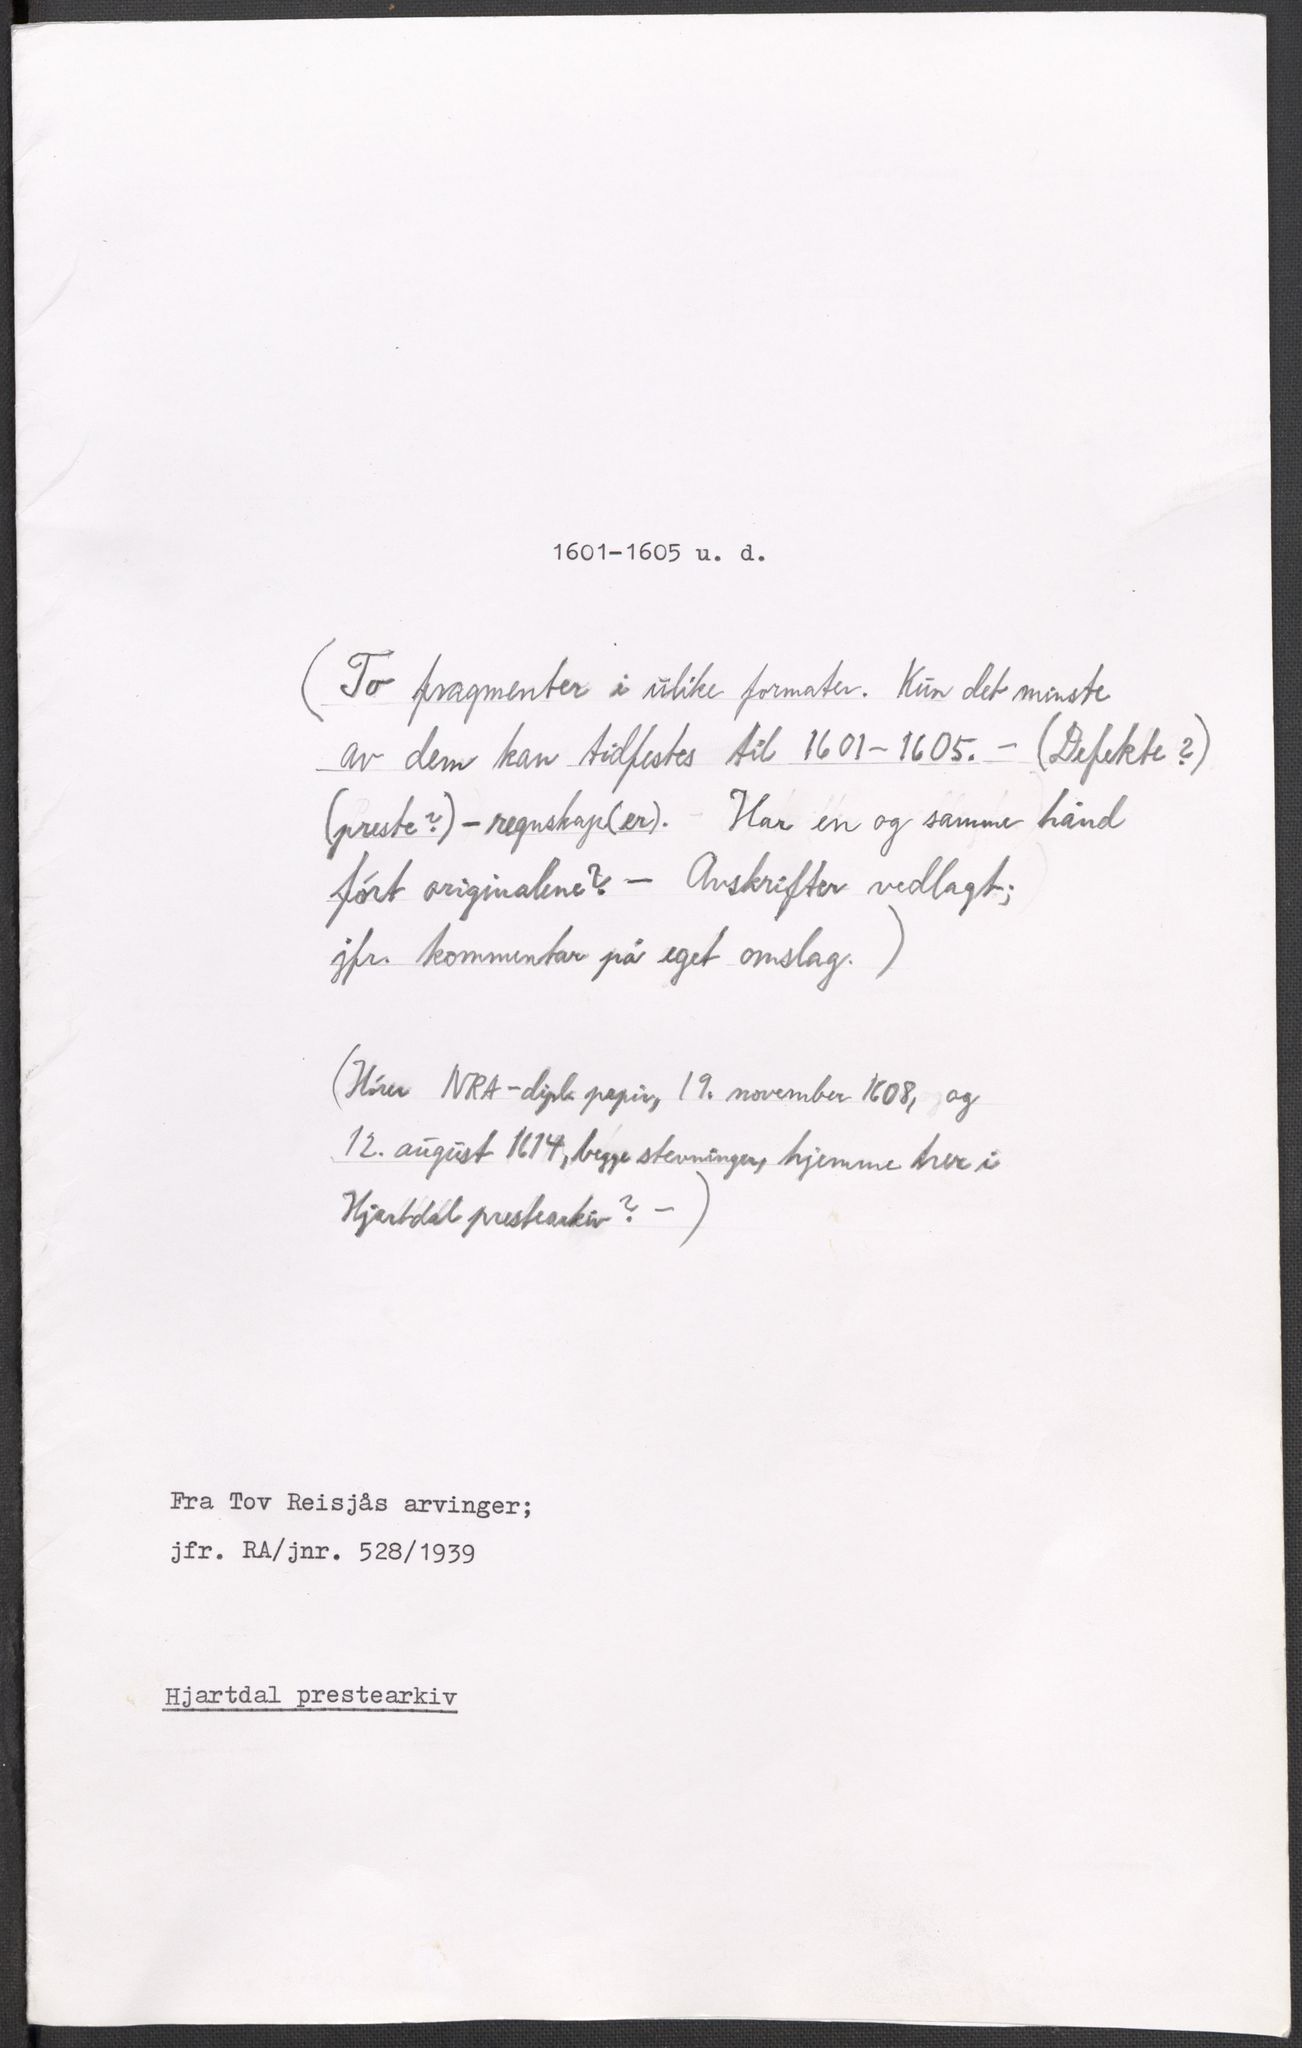 1601-1605 u. d.
(To fragmenter i ulike formater. Kun det minste
av dem kan tidfestes til 1601-1605. - (Defekte?)
(preste?)-regnskap(er). - Har én og samme hånd
ført originalene? - Avskrifter vedlagt;
jfr. kommentar på eget omslag.)
(Hører NRA-dipl. papir, 19. november 1608, og
12. august 1614, begge stevninger, hjemme her i
Hjartdal prestearkiv? -)
Fra Tov Reisjås arvinger;
jfr. RA/jnr. 528/1939
Hjartdal prestearkiv